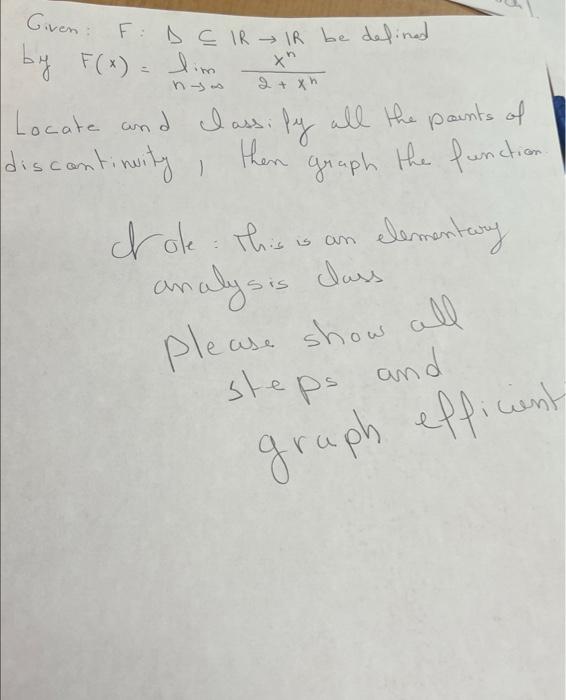 Given: F: D ⊆ IR → IR be defined
by F(x) = lim n→∞ x^n / 2 + x^n
Locate and classify all the points of
discontinuity, then graph the function.
Note: this is an elementary
analysis class
please show all
steps and
graph efficient